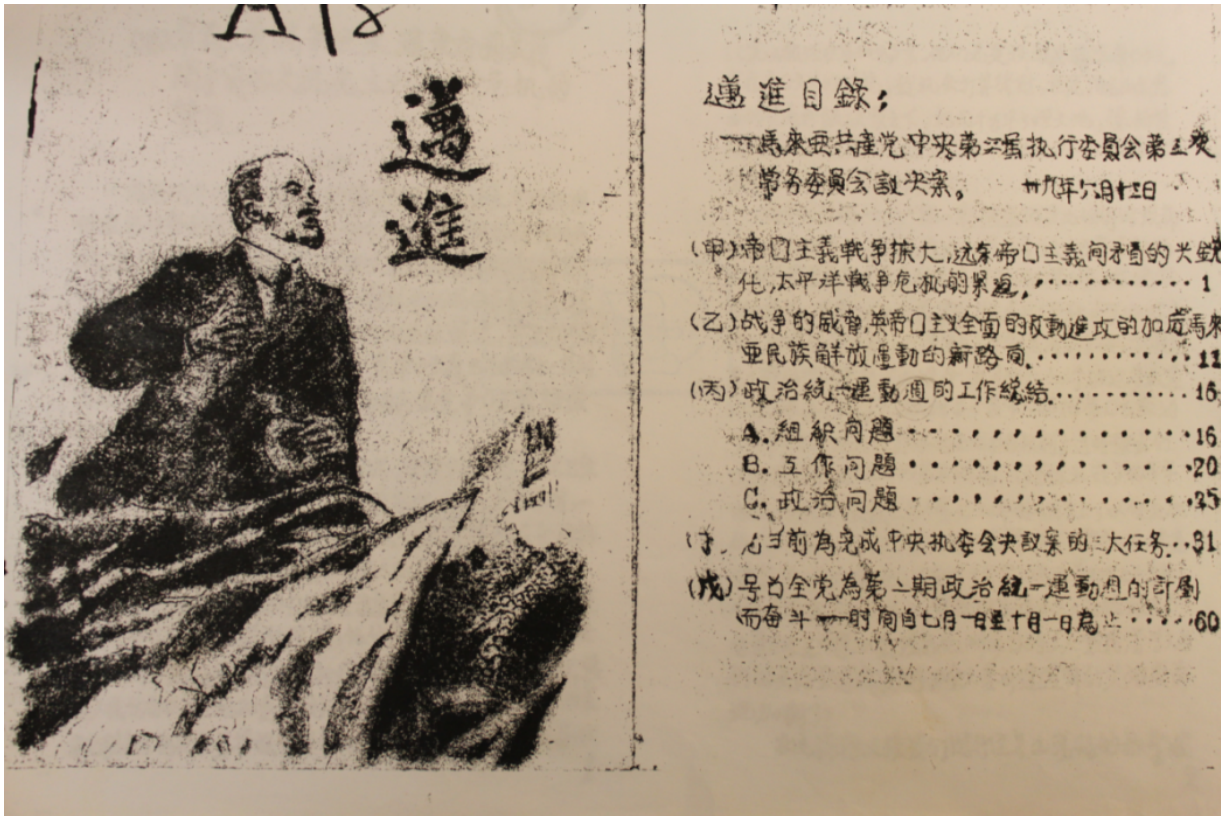 A18
邁進
邁進目錄；
一馬來亞共產党中央第二屆执行委員会第三次
常务委員会议决案。 卅九年六月十三日
(甲)帝囗主義戰爭擴大,远东帝囗主義间矛盾的尖銳
化,太平洋戰爭危机的緊迫,············1
(乙)战爭的威脅,英帝囗主义全面的反動進攻的加
亞民族解放運動的新路向···········11
(丙)政治統一運動週的工作總結···········16
A.組織问題···········16
B.工作问題···········20
C.政治问題···········25
当前為完成中央执委会决議案的三大任务··31
(戊)号召全党為第二期政治統一運動週的計劃
而奋斗一时间自七月一日至十月一日為止·····60